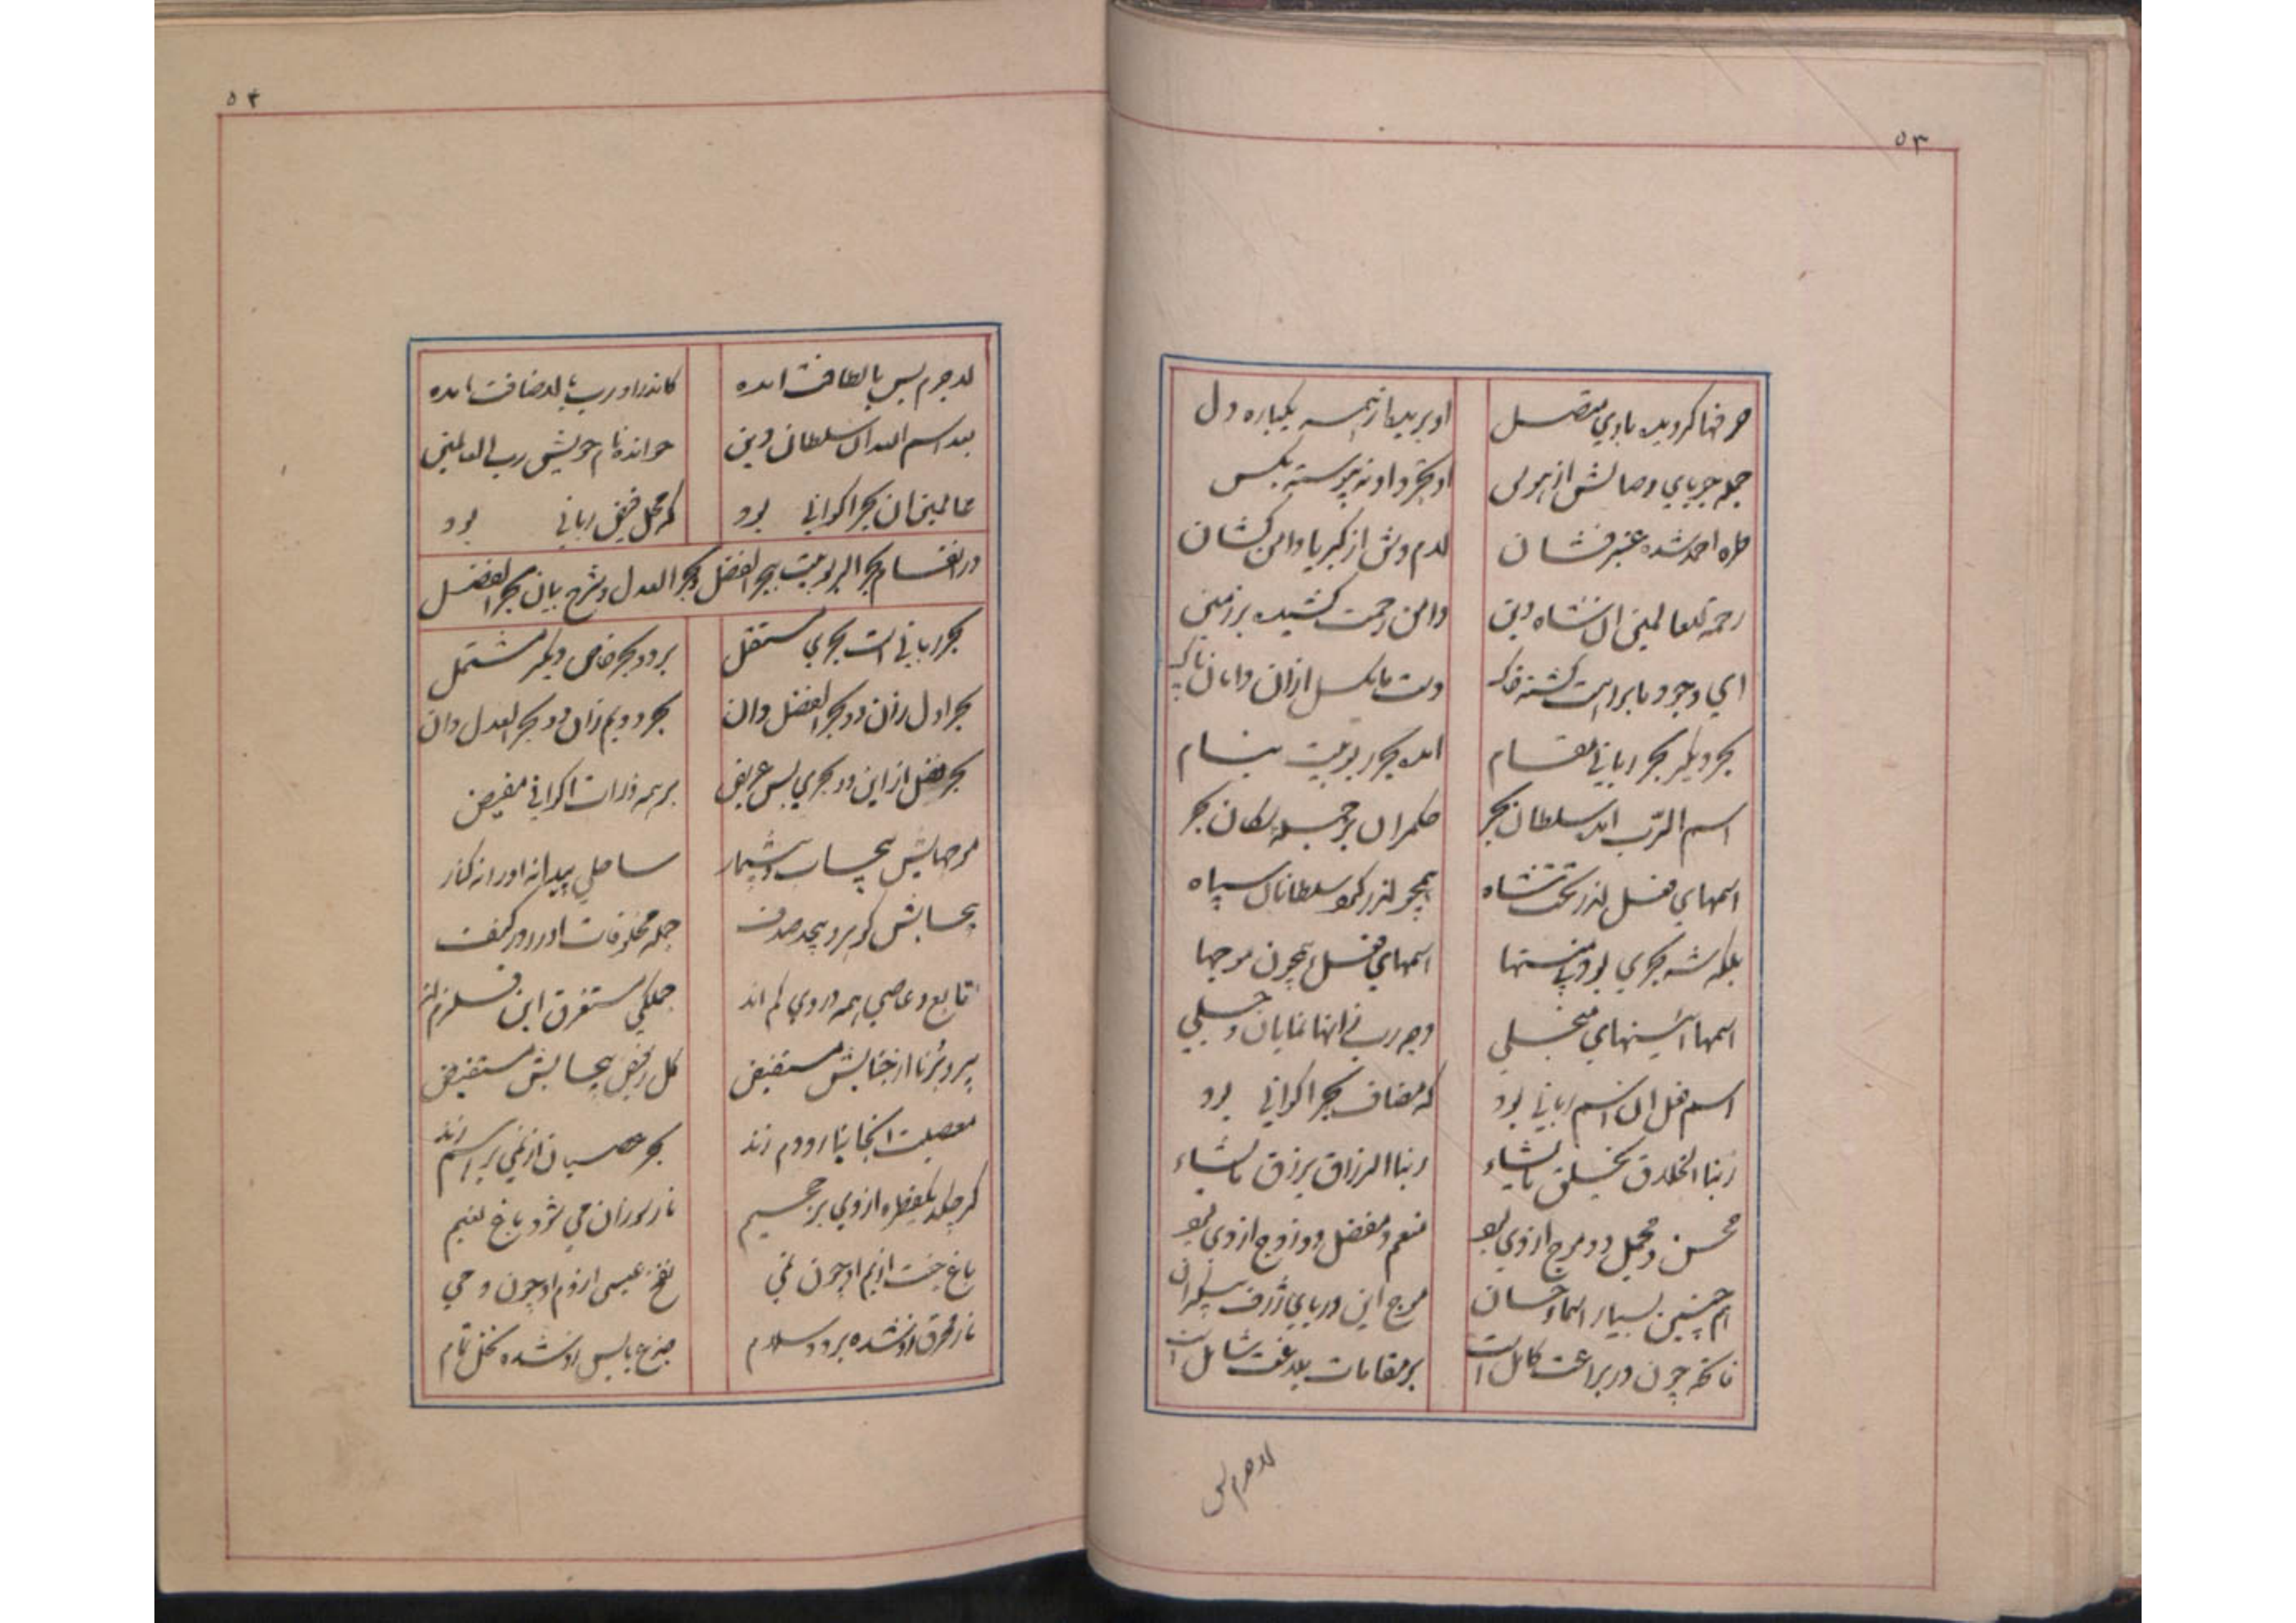 ۵۳
حرفها گردیده با وی متصل
او بریده از همه یکباره دل
جمله جویای وصالش از هوس
او مجرد او نه پیوسته بکس
طره احمد شده عنبر فشان
لام وش از کبریا دامن کشان
رحمة للعالمین ان شاه دین
دامن رحمت کشیده بر زمین
ای وجود ما براهت گشته خاک
دست ما مگسل ازان دامان پاک
بحر دیگر بحر ربانی مقام
امده بحر ربوبیت بنام
اسم الرب امد سلطان بحر
حکمران بر جمله سکان بحر
اسمهای فعل اندر تحت شاه
همچو اندر حکم سلطانان سپاه
بلکه شه بحری بود بی منتها
اسمهای فعل همچون موجها
اسمها ائینهای منجلی
وجه رب زانها نمایان و جلی
اسم فعل ان اسم ربانی بود
که مضاف بحر اکوانی بود
ربنا الخلاق یخلق ما یشاء
ربنا الرزاق یرزق ما یشاء
محسن و مجمل دو موج از وی بود
منعم و مفضل دو زوج از وی بود
هم چنین بسیار اسماء حسان
موج این دریای ژرف بیکران
ناطقه چون در براعت کامل است
بر مقامات بلاغت شامل است
لاجرم بس
۵۴
لاجرم بس با لطافت امده
کاندر او رب با اضافت امده
بعد اسم الله ان سلطان دین
خوانده نام خویش رب العالمین
عالمین ان بحر اکوانی بود
که محل فیض ربانی بود
در انقسام بحر الربوبیت ببحر الفضل و بحر العدل و شرح بیان بحر الفضل
بحر ربانی است بحری مستقل
بر دو بحر خاص دیگر مشتمل
بحر اول زان دو بحر الفضل دان
بحر دویم زان دو بحر العدل دان
بحر فضل از این دو بحری بس عریض
بر همه ذرات اکوانی مفیض
موجهایش بیحساب و بیشمار
ساحلی پیدا نه او را نه کنار
بیحسابش گوهر و بیحد صدف
جمله مخلوقات او را در کنف
تابع و عاصی همه در وی گم اند
جملگی مستغرق این قلزم اند
پیر و برنا از جنابش مستفیض
کل ز فیض بیحسابش مستفیض
معصیت انجا نیارد دم زند
بحر عصیان از نمی بر هم زند
گر چکد یکقطره از وی بر جحیم
نار سوزان می شود باغ نعیم
باغ جنت از یم او چون نمی
نفخ عیسی از دم او چون دمی
نار نمرود زو شده برد و سلام
جذع یابس زو شده نخل تمام